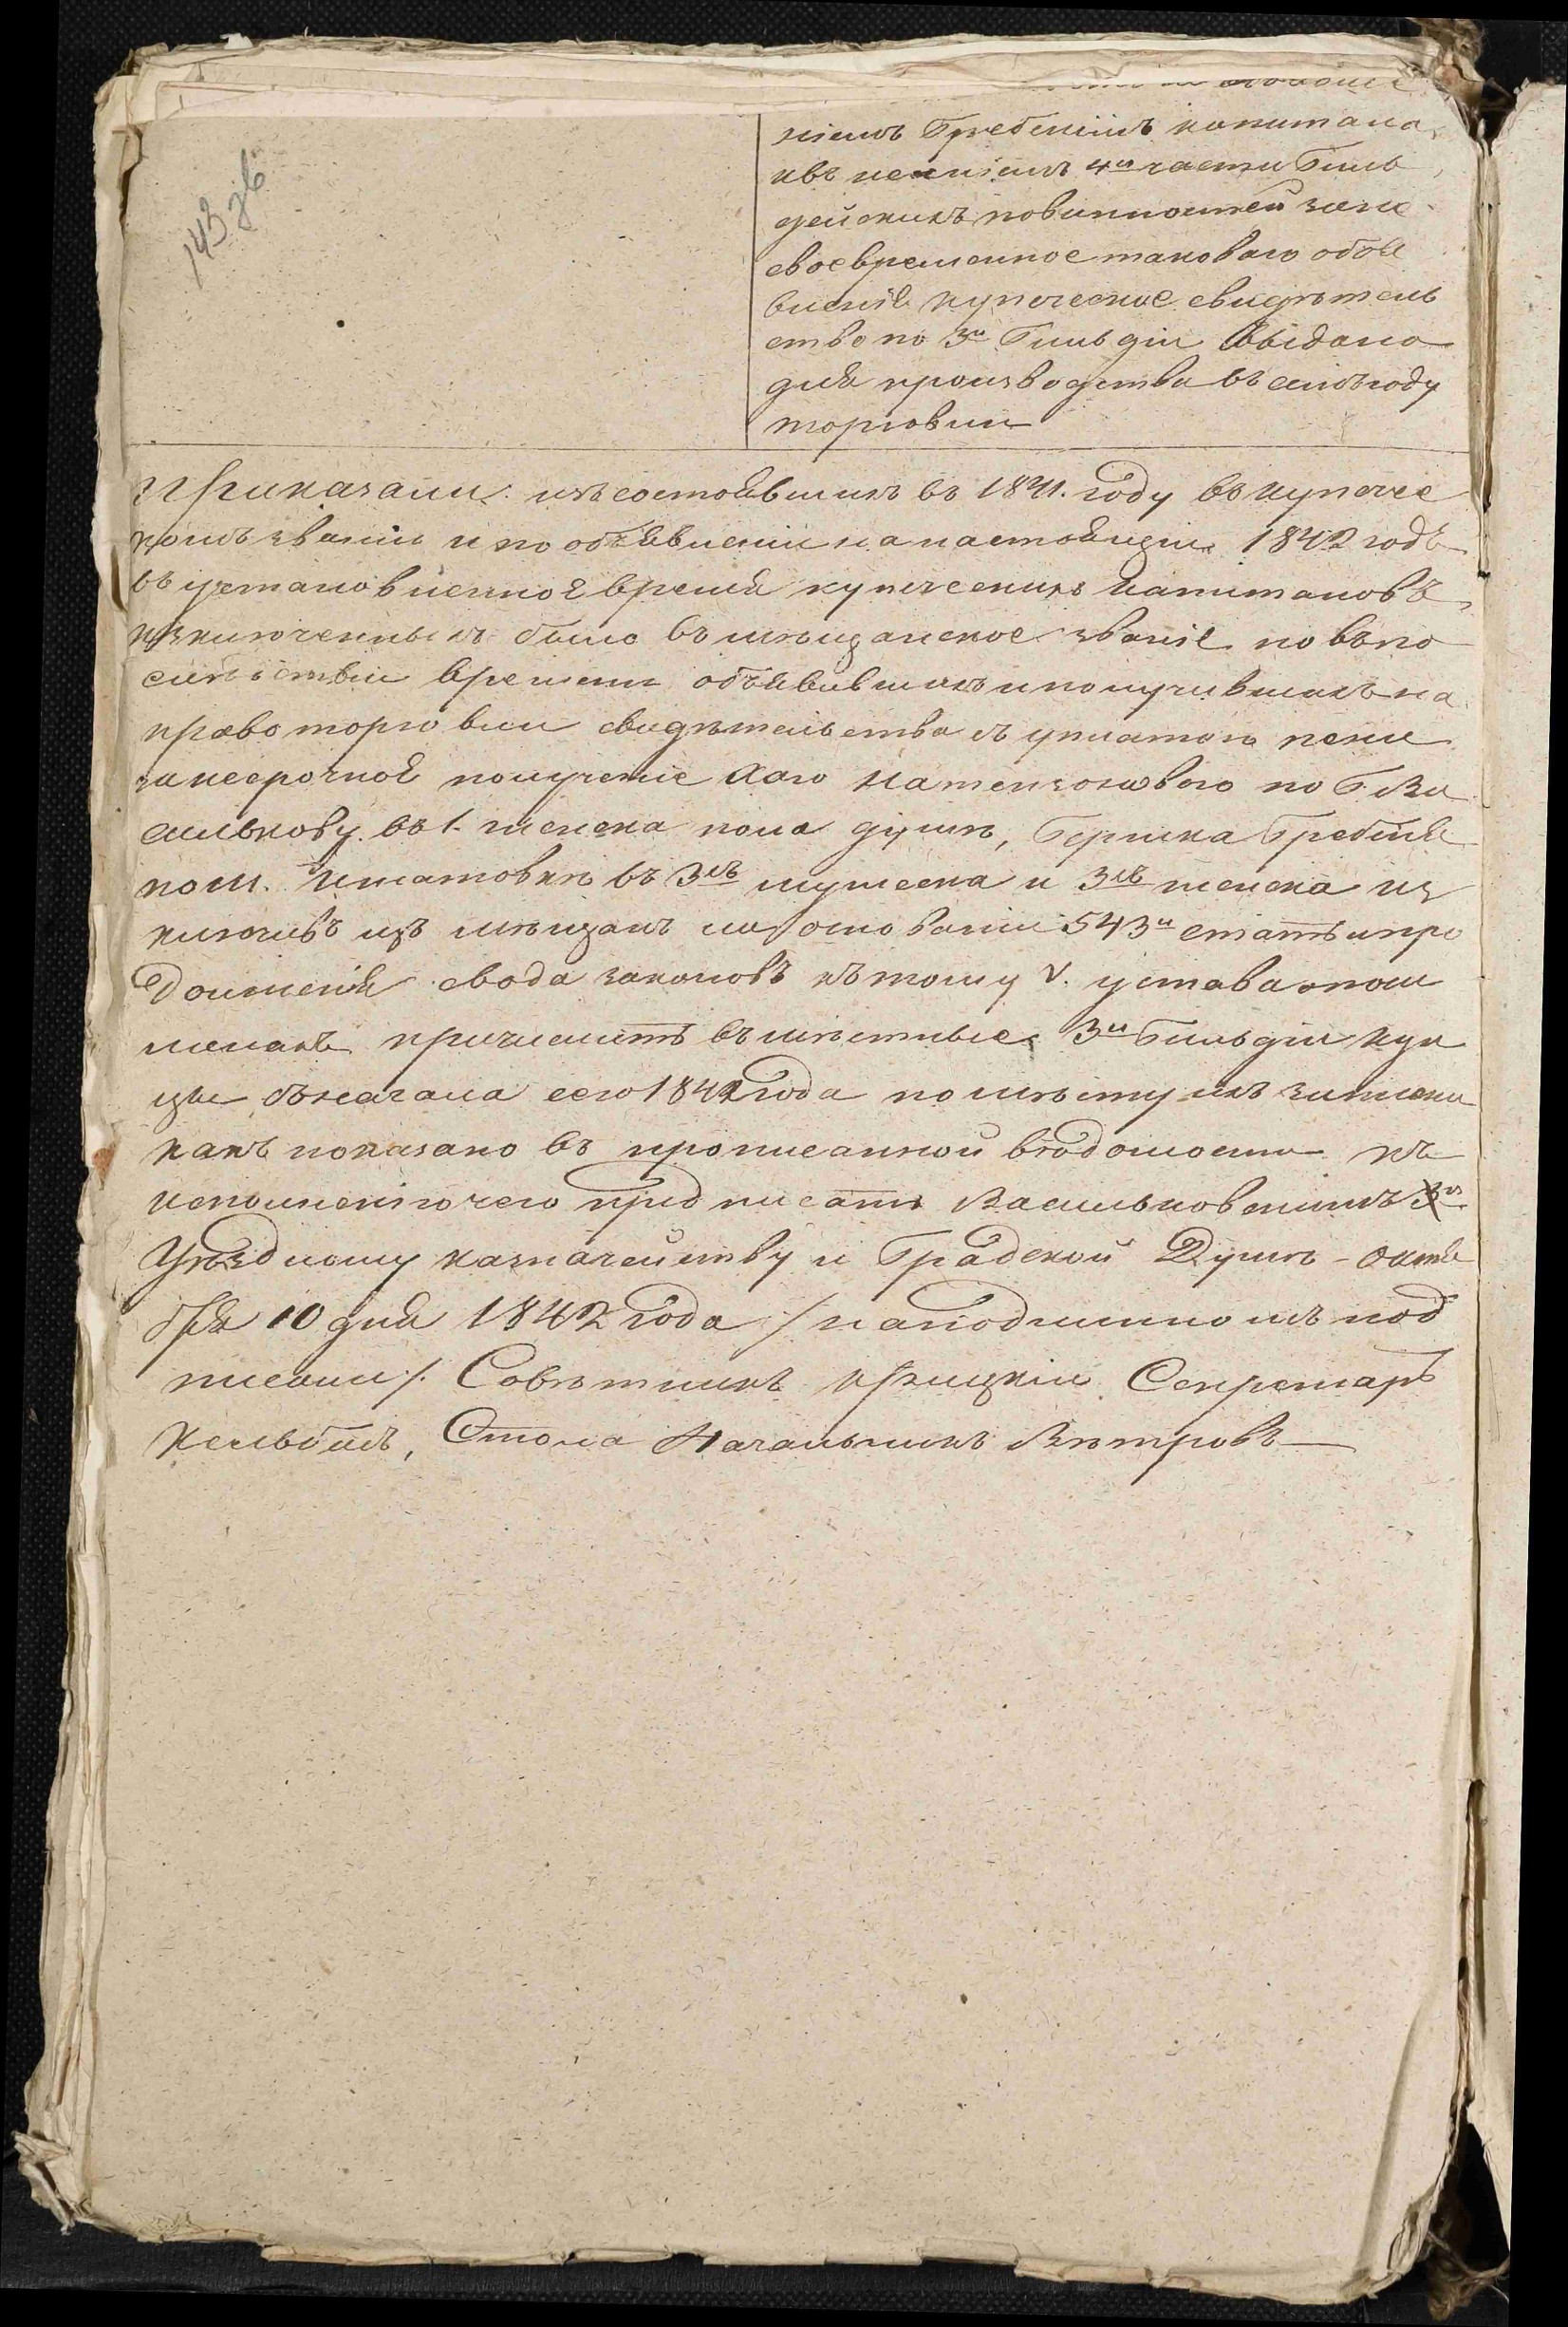 143 зв
ніемъ Гребенимъ капитала,
и въ ченіемъ 4й части Гиль
дейскихъ повинностей зане
своевременное таковаго объя
вленія купеческое свидѣтель
ство по 3й Гильдіи выдано
для производства въ семъ году
торговли
Приказали: изъ состоявшихъ въ 1841. году въ купечес
комъ званіи и по объявленіи на настоящій 1842 годъ
въ установленное время купеческихъ Капиталовъ
изключенныхъ было въ мѣщанское званіе но въ по
слѣдствіи времени объявившихъ и получившихъ на
право торговли свидѣтельства съ уплатою пени
за несрочное получение Хаю Камензоновою по Г. Ва
силькову въ 1. женска пола душѣ, Гершка Гребеня
по м. Игнатовкѣ въ 3хъ мужеска и 3хъ женска из
ключивъ изъ мѣщанъ на основаніи 543й статьи про
долженія свода законовъ къ тому V. устава о пош
линахъ причислить въ мѣстные 3й Гильдіи куп
цы съ начала сего 1842 года по мѣсту ихъ записки
какъ показано въ прописанной вѣдомости къ
исполненію чего предписать Васильковскимъ
Уѣздному казначейству и Градской Думѣ – Октя
бря 10 дня 1842 года /на подлинномъ под
писали/. Совѣтникъ Крицкій Секретарь
Кельбимъ, Стола Начальникъ Вѣтровъ